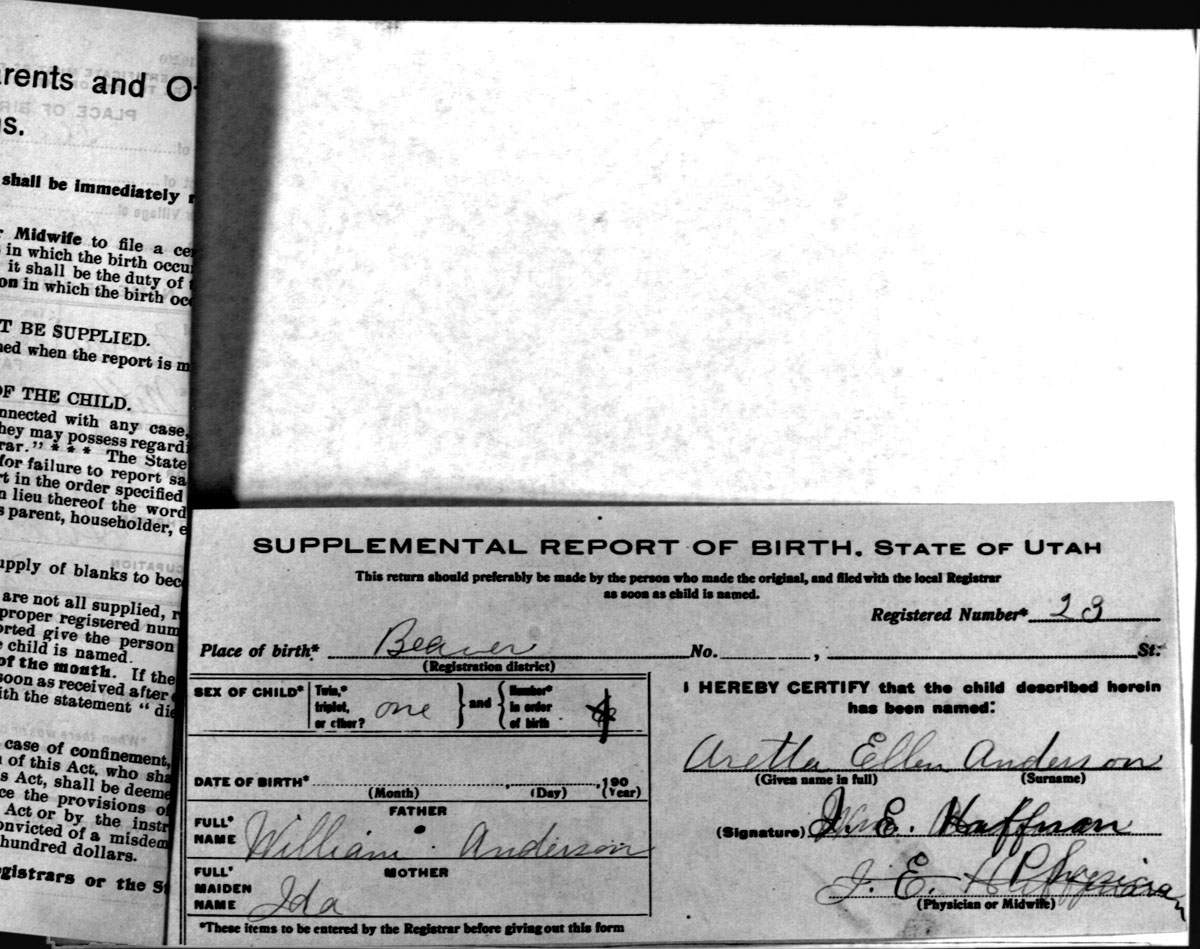 rents and O
s.
shall be immediately
Midwife to file a
in which the birth occu
it shall be the duty of
on in which the birth occ
T BE SUPPLIED.
ned when the report is m
OF THE CHILD.
nnected with any case,
hey may possess regardi
rar." * * * The State
for failure to report sa
t in the order specified
n lieu thereof the word
s parent, householder, e
upply of blanks to bec
are not all supplied, r
proper registered num
orted give the person
e child is named.
of the month. If the
soon as received after
ith the statement "die
case of confinement,
n of this Act, who sha
s Act, shall be deeme
ce the provisions of
Act or by the instr
onvicted of a misdem
hundred dollars.
gistrars or the St
SUPPLEMENTAL REPORT OF BIRTH. STATE OF UTAH
This return should preferably be made by the person who made the original, and filed with the local Registrar
as soon as child is named.
Registered Number* 23
Place of birth* Beaver No. , St.
(Registration district)
SEX OF CHILD* Twin,* triplet, or other? one } and { Number* in order of birth
DATE OF BIRTH* , 190
(Month) (Day) (Year)
FATHER
FULL* NAME William Anderson
MOTHER
FULL* MAIDEN NAME Ida
*These items to be entered by the Registrar before giving out this form
I HEREBY CERTIFY that the child described herein
has been named:
Aretta Ellen Anderson
(Given name in full) (Surname)
(Signature) J. E. Haffman
J. E. Physician
(Physician or Midwife)